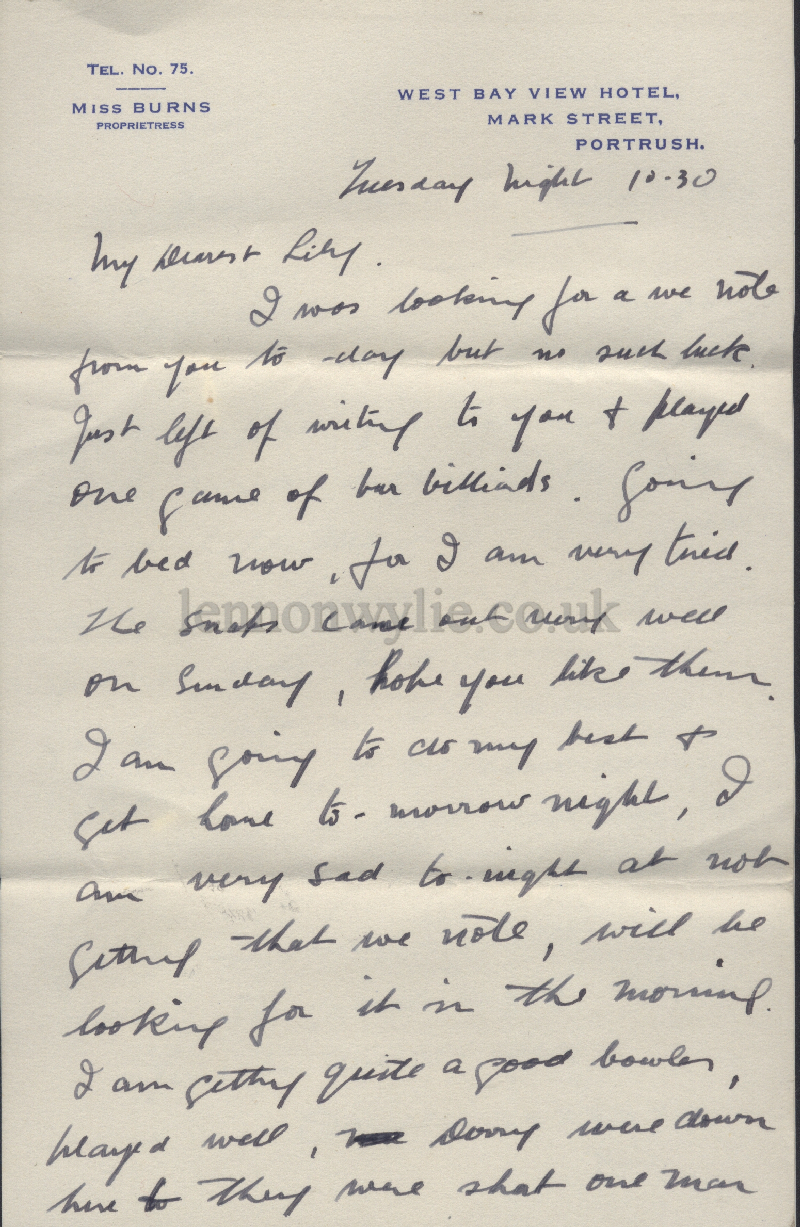 TEL. NO. 75.
MISS BURNS
PROPRIETRESS
WEST BAY VIEW HOTEL,
MARK STREET,
PORTRUSH.
Tuesday Night 10-30
My Dearest Lily.
I was looking for a we note
from you to-day but no such luck.
Just left of writing to you & played
one game of bar billiads. Going
to bed now, for I am very tired.
lennonwylie.co.uk
The snaps came out very well
on Sunday, hope you like them.
I am going to do my best &
get home to-morrow night, I
am very sad to-night at not
getting that we note, will be
looking for it in the morning.
I am getting quite a good bowler,
played well, were down
here they were short one man